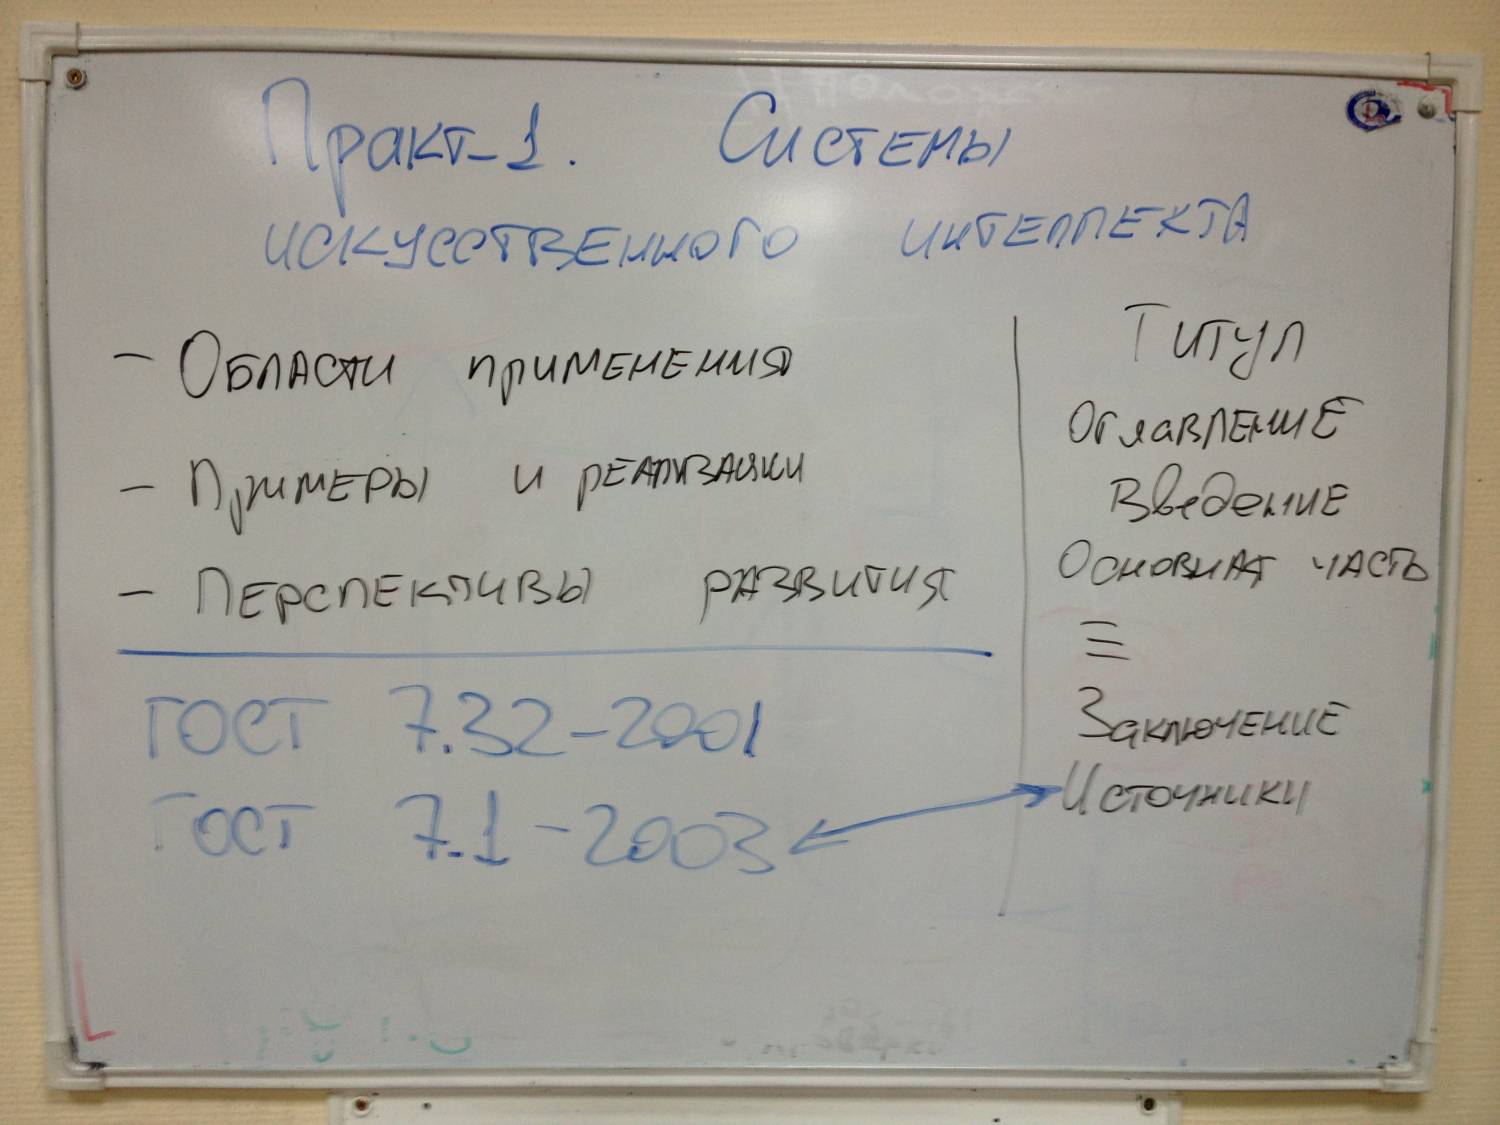 Практ-1. Системы
искусственного интеллекта
- Области применения
- Примеры и реализации
- Перспективы развития
ГОСТ 7.32-2001
ГОСТ 7.1-2003
Титул
Оглавление
Введение
Основная часть
Заключение
Источники